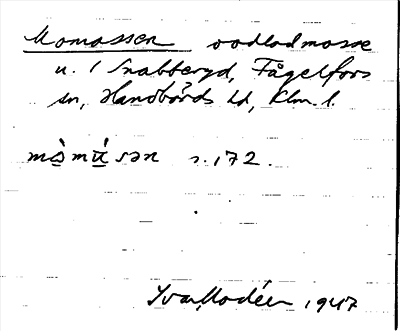 Momossen oodlad mosse
u. / Snabberyd, Fågelfors
sn, Handbörds hd, Klm. l.
mòmúsən s. 172.
Ivar Modéer 1947